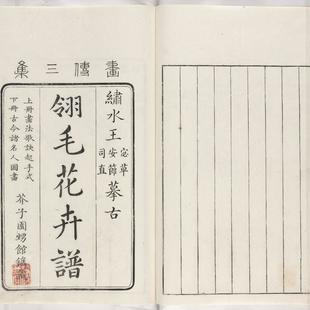 畫傳三集
繡水王宓草安節司直摹古
翎毛花卉譜
上冊畫法歌訣起手式
下冊古今諸名人圖畫
芥子園甥館鐫藏